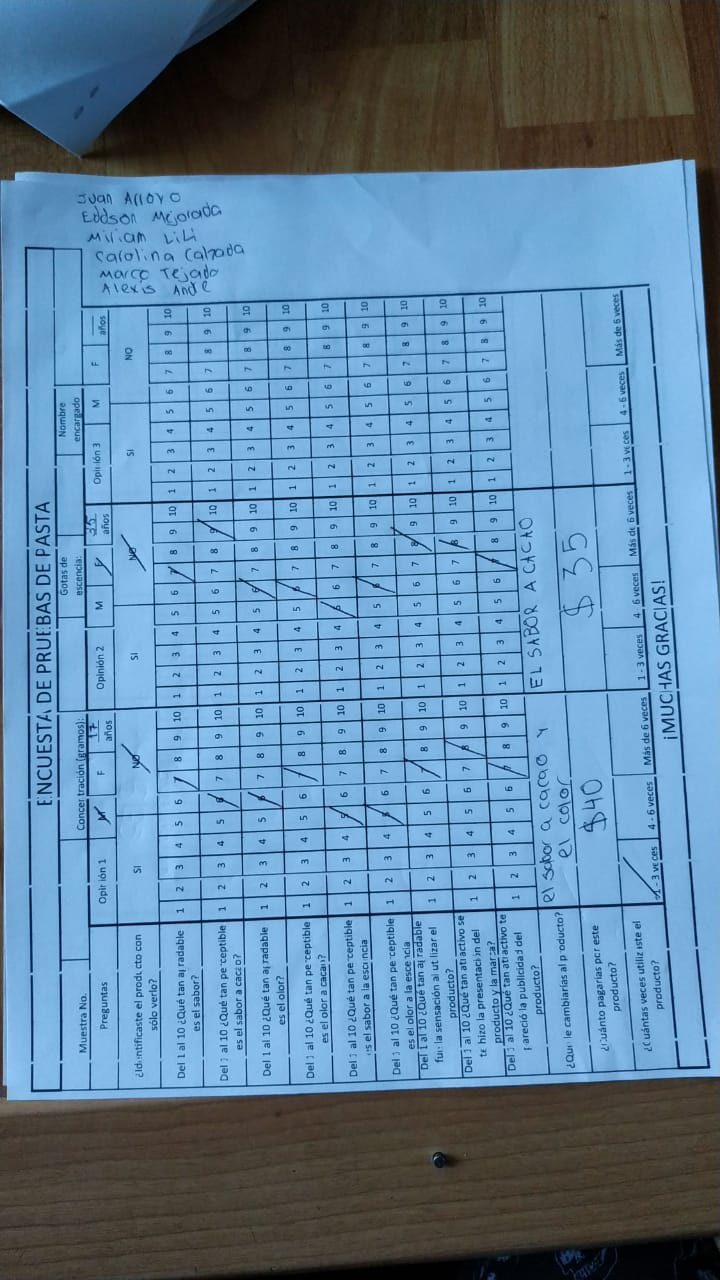 Juan Arroyo
Eddson Mejorada
Miriam Lili
Carolina Calzada
Marco Tejado
Alexis Andé
ENCUESTA DE PRUEBAS DE PASTA
Muestra No. Concentración (gramos): Gotas de escencia: Nombre encargado
Preguntas Opinión 1 M F 17 años Opinión 2 M F 35 años Opinión 3 M F años
¿Identificaste el producto con sólo verlo? SI NO SI NO SI NO
Del 1 al 10 ¿Qué tan agradable es el sabor? 1 2 3 4 5 6 7 8 9 10 1 2 3 4 5 6 7 8 9 10 1 2 3 4 5 6 7 8 9 10
Del 1 al 10 ¿Qué tan perceptible es el sabor a cacao? 1 2 3 4 5 6 7 8 9 10 1 2 3 4 5 6 7 8 9 10 1 2 3 4 5 6 7 8 9 10
Del 1 al 10 ¿Qué tan agradable es el olor? 1 2 3 4 5 6 7 8 9 10 1 2 3 4 5 6 7 8 9 10 1 2 3 4 5 6 7 8 9 10
Del 1 al 10 ¿Qué tan perceptible es el olor a cacao? 1 2 3 4 5 6 7 8 9 10 1 2 3 4 5 6 7 8 9 10 1 2 3 4 5 6 7 8 9 10
Del 1 al 10 ¿Qué tan perceptible es el sabor a la escencia 1 2 3 4 5 6 7 8 9 10 1 2 3 4 5 6 7 8 9 10 1 2 3 4 5 6 7 8 9 10
Del 1 al 10 ¿Qué tan perceptible es el olor a la escencia 1 2 3 4 5 6 7 8 9 10 1 2 3 4 5 6 7 8 9 10 1 2 3 4 5 6 7 8 9 10
Del 1 al 10 ¿Qué tan agradable fue la sensación al utilizar el producto? 1 2 3 4 5 6 7 8 9 10 1 2 3 4 5 6 7 8 9 10 1 2 3 4 5 6 7 8 9 10
Del 1 al 10 ¿Qué tan atractivo se te hizo la presentación del producto y la marca? 1 2 3 4 5 6 7 8 9 10 1 2 3 4 5 6 7 8 9 10 1 2 3 4 5 6 7 8 9 10
Del 1 al 10 ¿Qué tan atractivo te pareció la publicidad del producto? 1 2 3 4 5 6 7 8 9 10 1 2 3 4 5 6 7 8 9 10 1 2 3 4 5 6 7 8 9 10
¿Qué le cambiarías al producto? el sabor a cacao y el color EL SABOR A CACAO
¿Cuánto pagarías por este producto? $40 $35
¿Cuántas veces utilizaste el producto? 1 - 3 veces 4 - 6 veces Más de 6 veces 1 - 3 veces 4 6 veces Más de 6 veces 1 - 3 veces 4 - 6 veces Más de 6 veces
¡MUCHAS GRACIAS!